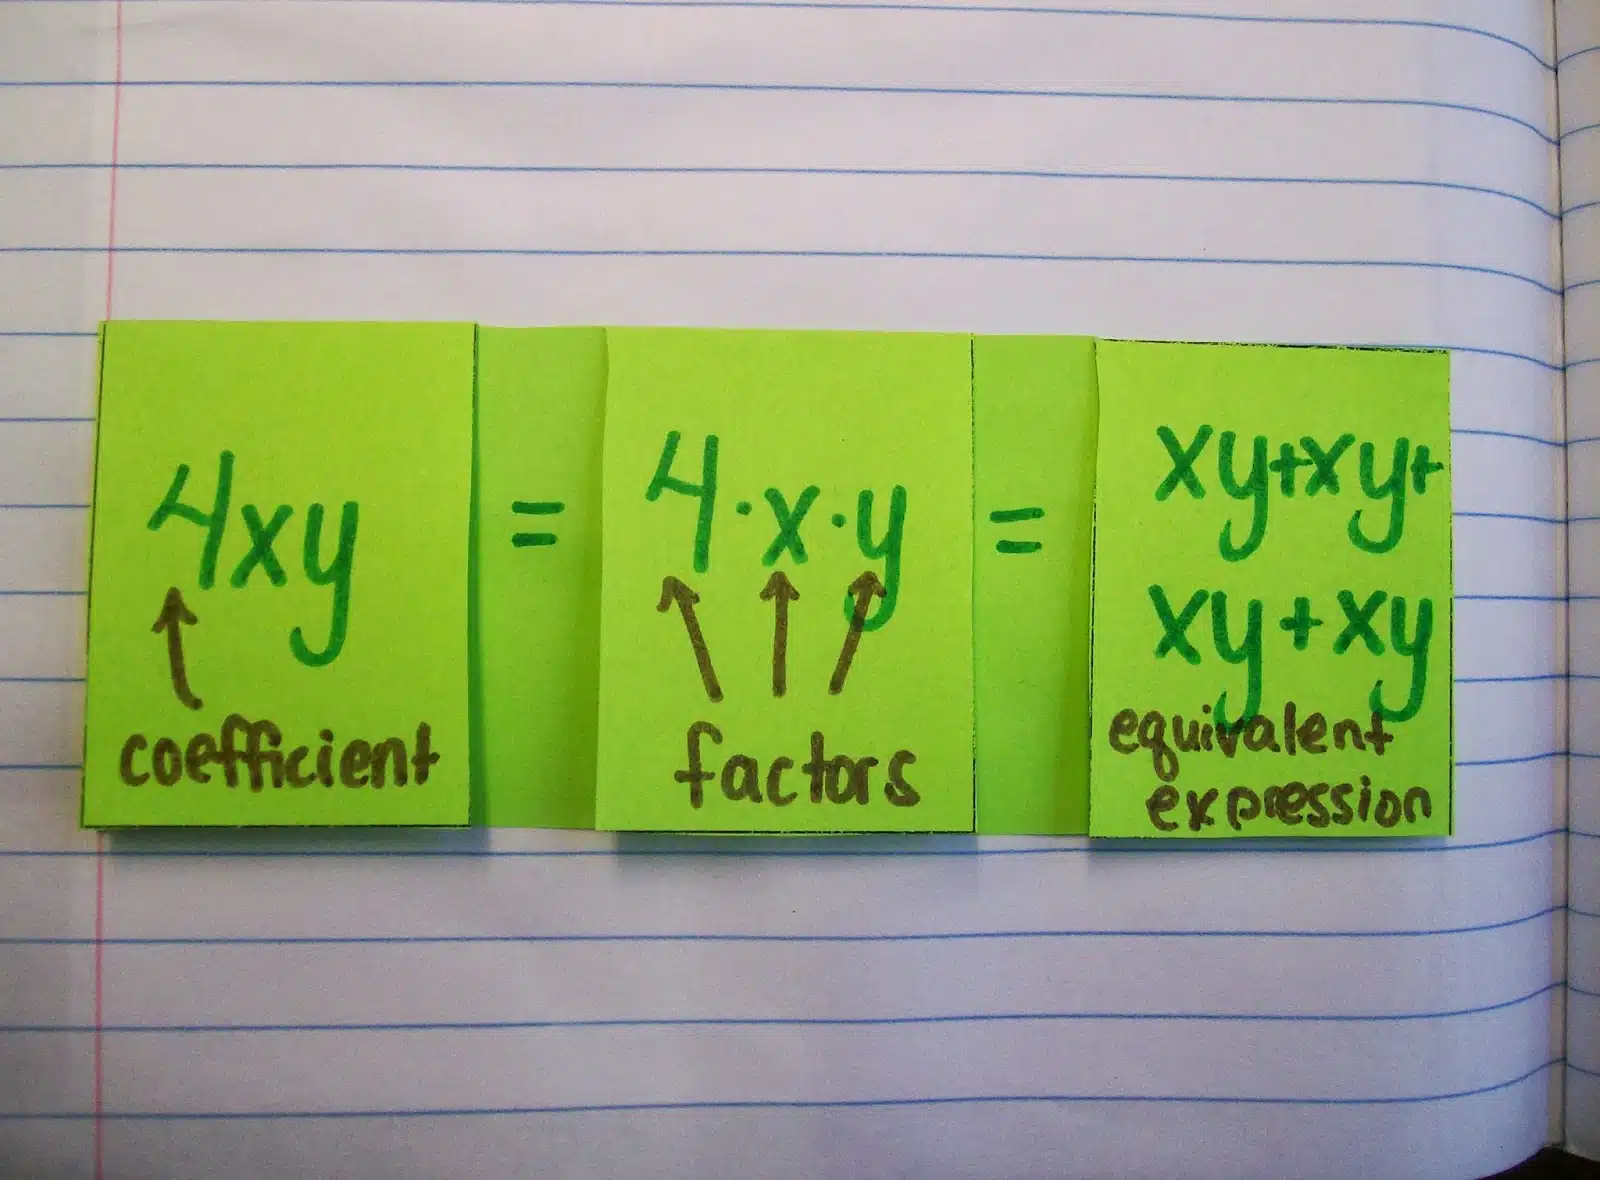 4xy = 4·x·y = xy+xy+
xy+xy
coefficient
factors
equivalent
expression